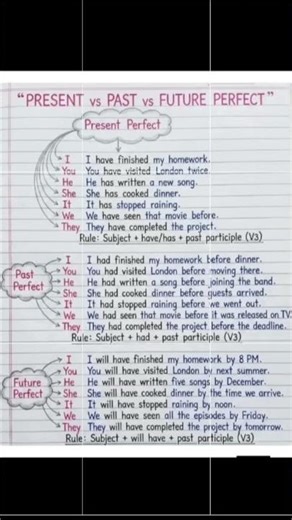 "PRESENT vs PAST vs FUTURE PERFECT"
Present Perfect
I I have finished my homework.
You You have visited London twice.
He He has written a new song.
She She has cooked dinner.
It It has stopped raining.
We We have seen that movie before.
They They have completed the project.
Rule: Subject + have/has + past participle (V3)
Past Perfect
I I had finished my homework before dinner.
You You had visited London before moving there.
He He had written a song before joining the band.
She She had cooked dinner before guests arrived.
It It had stopped raining before we went out.
We We had seen that movie before it was released on TV.
They They had completed the project before the deadline.
Rule: Subject + had + past participle (V3)
Future Perfect
I I will have finished my homework by 8 PM.
You You will have visited London by next summer.
He He will have written five songs by December.
She She will have cooked dinner by the time we arrive.
It It will have stopped raining by noon.
We We will have seen all the episodes by Friday.
They They will have completed the project by tomorrow.
Rule: Subject + will have + past participle (V3)